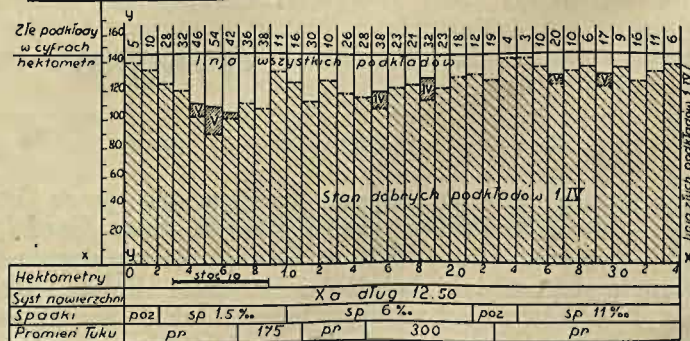 Złe podkłady
w cyfrach
hektometr
y
160
140
120
100
80
60
40
20
x
y
5 10 28 32 46 54 42 36 38 11 16 30 10 26 28 38 23 21 32 23 18 12 19 4 3 10 20 10 6 17 9 16 11 6
Linja wszystkich podkładów
V V IV IV V V
Stan dobrych podkładów 1 IV
x
Hektometry 0 2 4 6 8 10 2 4 6 8 20 2 4 6 8 30 2 4
stacja
Syst nawierzchni Xa dług 12.50
Spadki poz sp 1.5 ‰ sp 6 ‰ poz sp 11 ‰
Promień łuku pr 175 pr 300 pr